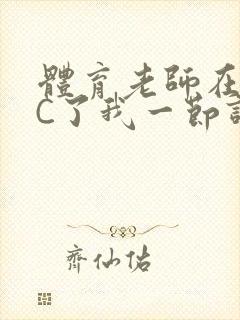 體育老師在
C了我一節
齊仙佑